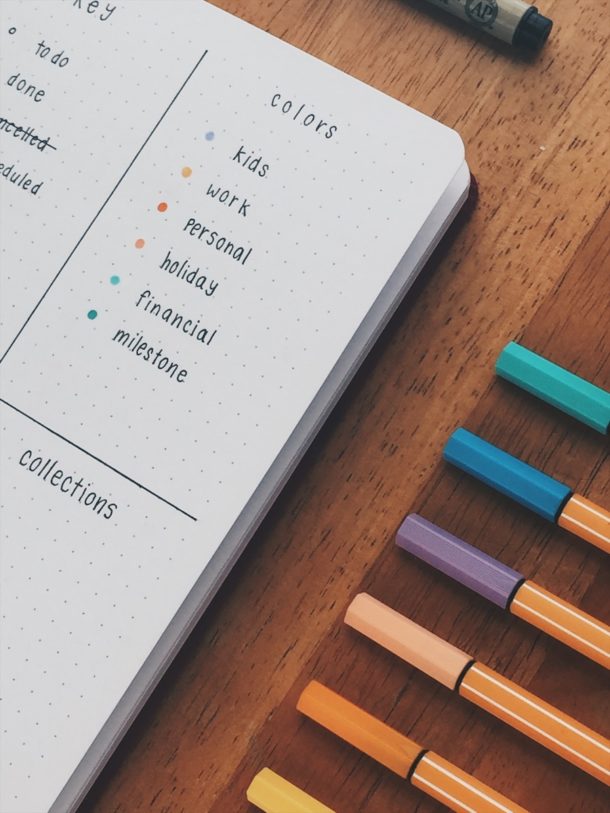 key
to do
done
colors
kids
work
personal
holiday
financial
milestone
collections
AP